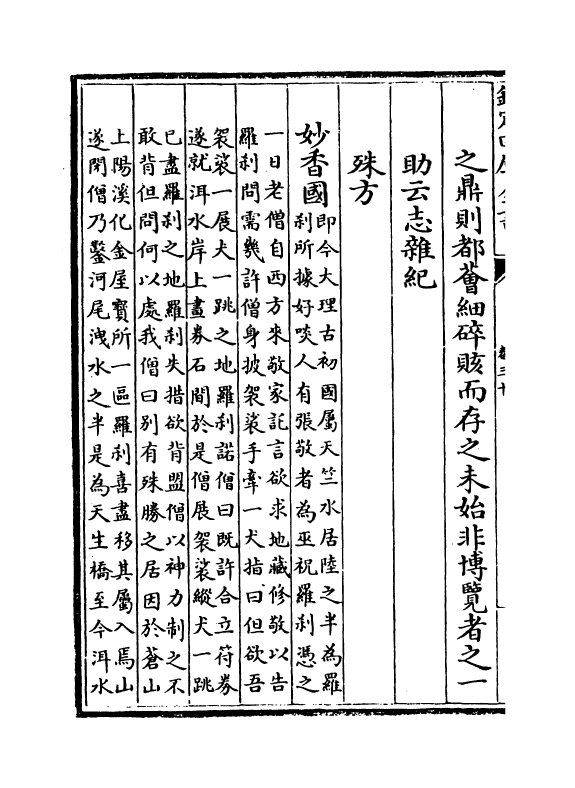 之鼎則都薈細碎賅而存之未始非博覽者之一
助云志雜紀
殊方
妙香國即今大理古初國屬天竺水居陸之半為羅
刹所據好啖人有張敬者為巫祝羅刹憑之
一日老僧自西方來敬家託言欲求地藏修敬以告
羅刹問需幾許僧身披袈裟手牽一犬指曰但欲吾
袈裟一展犬一跳之地羅刹諾僧曰既許合立符券
遂就洱水岸上畫券石間於是僧展袈裟縱犬一跳
已盡羅刹之地羅刹失措欲背盟僧以神力制之不
敢背但問何以處我僧曰別有殊勝之居因於蒼山
上陽溪化金屋寳所一區羅刹喜盡移其屬入焉山
遂閉僧乃鑿河尾洩水之半是為天生橋至今洱水